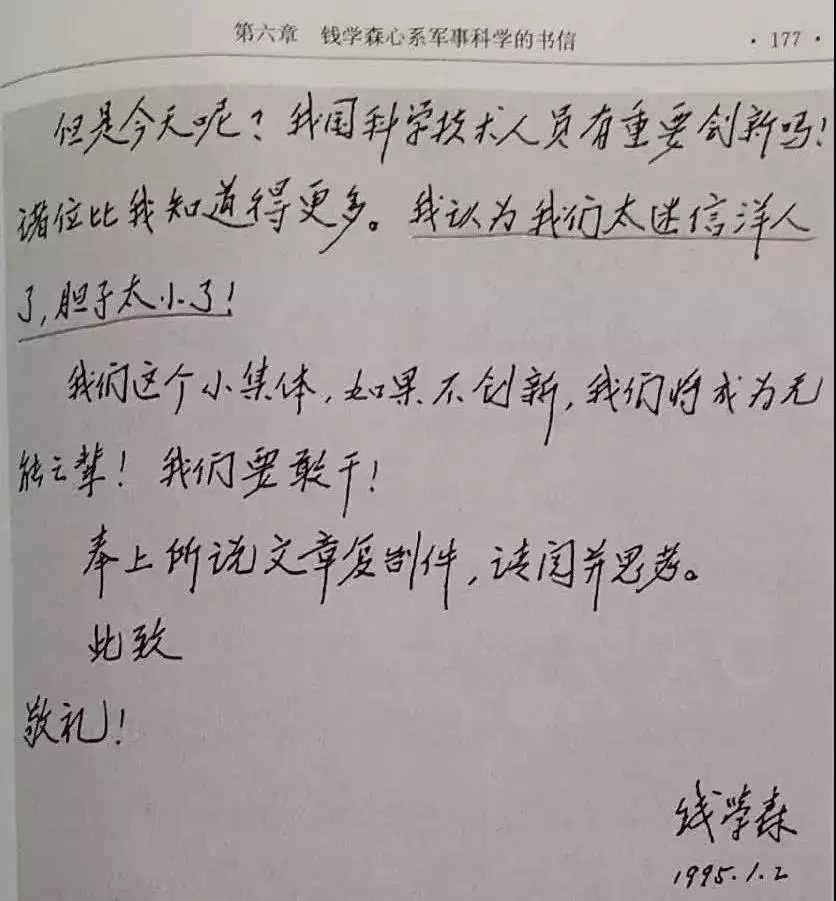 第六章 钱学森心系军事科学的书信 · 177 ·
但是今天呢？我国科学技术人员有重要创新吗！
诸位比我知道得更多。我认为我们太迷信洋人
了，胆子太小了！
我们这个小集体，如果不创新，我们将成为无
能之辈！我们要敢干！
奉上所说文章复制件，请阅并思考。
此致
敬礼！
钱学森
1995.1.2